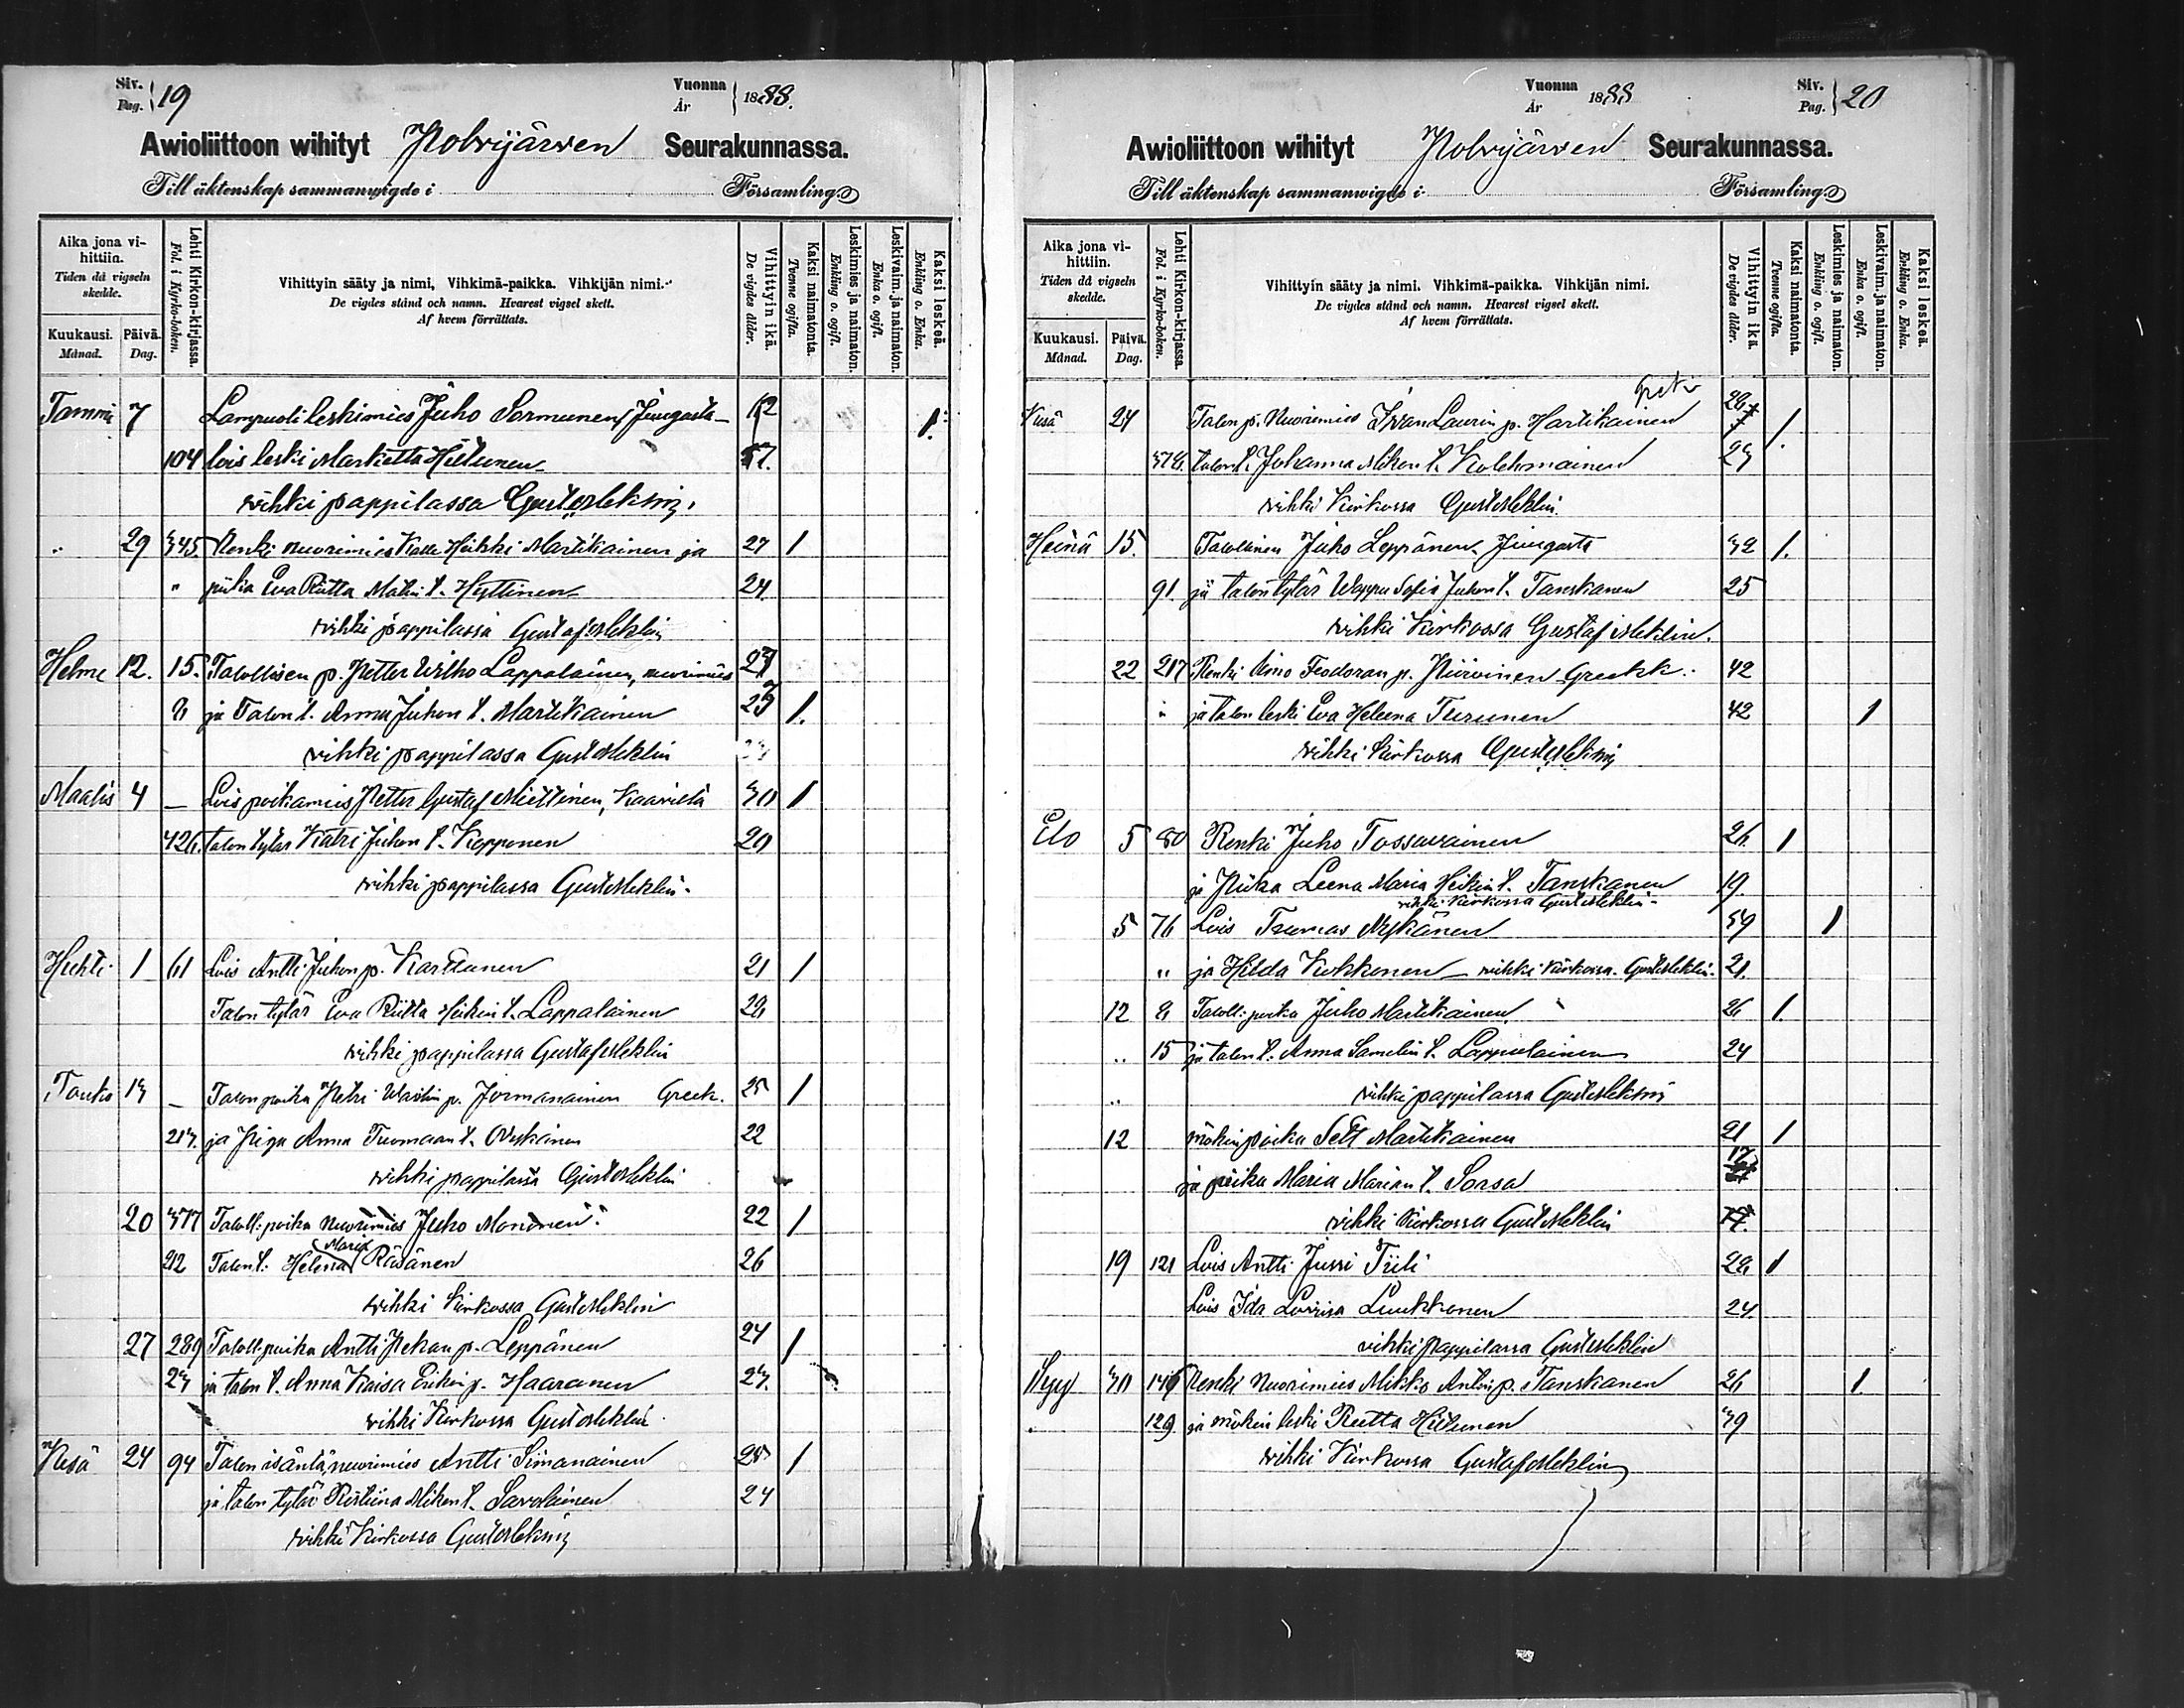 Siv.
Pag. 19
Vuonna
År 1888.
Awioliittoon wihityt Polvijärven Seurakunnassa.
Till äktenskap sammanwigde i Församling.
Aika jona vihittiin.
Tiden då vigseln skedde.
Kuukausi.
Månad.
Päivä.
Dag.
Lehti Kirkon-kirjassa.
Fol. i Kyrko-boken.
Vihittyin sääty ja nimi, Vihkimä-paikka. Vihkijän nimi.
De vigdes stånd och namn. Hvarest vigsel skett.
Af hvem förrättats.
Vihittyin ikä.
De vigdes ålder.
Kaksi naimatonta.
Tvenne ogifta.
Leskimies ja naimaton.
Enkling o. ogift.
Leskivaim. ja naimaton.
Enka o. ogift.
Kaksi leskeä.
Enkling o. Enka.
Tammi 7 Lampuoti leskimies Juho Sormunen, 62 1.
104 lois leski Marketta Hiltunen 57.
vihki pappilassa Gust. Meklin.
" 29 345 Renki nuorimies Kalle Heikki Martikainen ja 27 1
" piika Eva Riitta Matin t. Hyttinen 24.
vihki pappilassa Gustaf Meklin
Helmi 12. 15. Talollisen p. Petter Wilho Lappalainen, nuorimies
8 ja Talon t. Anna Juhon t. Martikainen 1.
vihki pappilassa Gust. Meklin
Maalis 4 — Lois poikamies Petter Gustaf Miettinen, Kaavilta 30 1
426. talon tytär Katri Juhon t. Kopponen 20
vihki pappilassa Gust. Meklin.
Huhti 1 61 Lois Antti Juhon p. Karttunen 21 1
Talon tytär Eva Riitta Heikin t. Lappalainen
vihki pappilassa Gustaf Meklin
Touko 13 — Talon poika Petri Wasilin p. Jormanainen Greek. 25 1
213. ja Piga Anna Tuomaan t. 22
vihki pappilassa Gust. Meklin
20 377 Taloll. poika nuorimies Juho Mononen 22 1
212 Talon t. Helena Maria Räsänen 26
vihki Kirkossa Gust. Meklin
27 289 Taloll. poika Antti Pekan p. Leppänen 24 1
23 ja talon t. Anna Kaisa Erikin p. Haaranen 23.
vihki Kirkossa Gust. Meklin.
Kesä 24 94 Talon isäntä, nuorimies Antti Simanainen 25 1
ja talon tytär Ristiina Mikon t. Savolainen 24
vihki Kirkossa Gust. Meklin
Vuonna
År 1888
Siv.
Pag. 20
Awioliittoon wihityt Polvijärven Seurakunnassa.
Till äktenskap sammanwigde i Församling.
Aika jona vihittiin.
Tiden då vigseln skedde.
Kuukausi.
Månad.
Päivä.
Dag.
Lehti Kirkon-kirjassa.
Fol. i Kyrko-boken.
Vihittyin sääty ja nimi. Vihkimä-paikka. Vihkijän nimi.
De vigdes stånd och namn. Hvarest vigsel skett.
Af hvem förrättats.
Vihittyin ikä.
De vigdes ålder.
Kaksi naimatonta.
Tvenne ogifta.
Leskimies ja naimaton.
Enkling o. ogift.
Leskivaim. ja naimaton.
Enka o. ogift.
Kaksi leskeä.
Enkling o. Enka.
Kesä 24 Talon p. Nuorimies Iwan Laurin p. Martikainen 1.
378. talon t. Johanna Mikon t. Kolehmainen 23
vihki Kirkossa Gust. Meklin.
Heinä 15. Talollinen Juho Leppänen 32 1.
91. ja talon tytär Wappu Sofia Juhon t. Tanskanen 25
vihki Kirkossa Gustaf Meklin.
22 217 Renki Simo Feodoran p. Piiroinen Greekk. 42
" ja talon leski Eva Helena Turunen 42 1
vihki Kirkossa Gust. Meklin
Elo 5 80 Renki Juho Tossavainen 26. 1
ja Piika Leena Maria Heikin t. Tanskanen 19.
vihki Kirkossa Gust. Meklin.
5 76 Lois Tuomas Nykänen 59 1
" ja Hilda Kokkonen — vihki Kirkossa. Gust. Meklin. 21.
12 8 Taloll. poika Juho Martikainen 26 1.
" 15 ja talon t. Anna Samelin t. Lappalainen 24
" vihki pappilassa Gust. Meklin
12 mökin poika Sett Martikainen 21 1
ja piika Maria Marian t. Sorsa 17
vihki Kirkossa Gust. Meklin
19 121 Lois Antti Jussi Tiili 1
Lois Ida Lovisa Luukkonen 24.
vihki pappilassa Gust. Meklin
Syys 30 146 Renki Nuorimies Mikko Antin p. Tanskanen 26 1.
129. ja mökin leski Reetta Hiltunen 39
vihki Kirkossa Gustaf Meklin